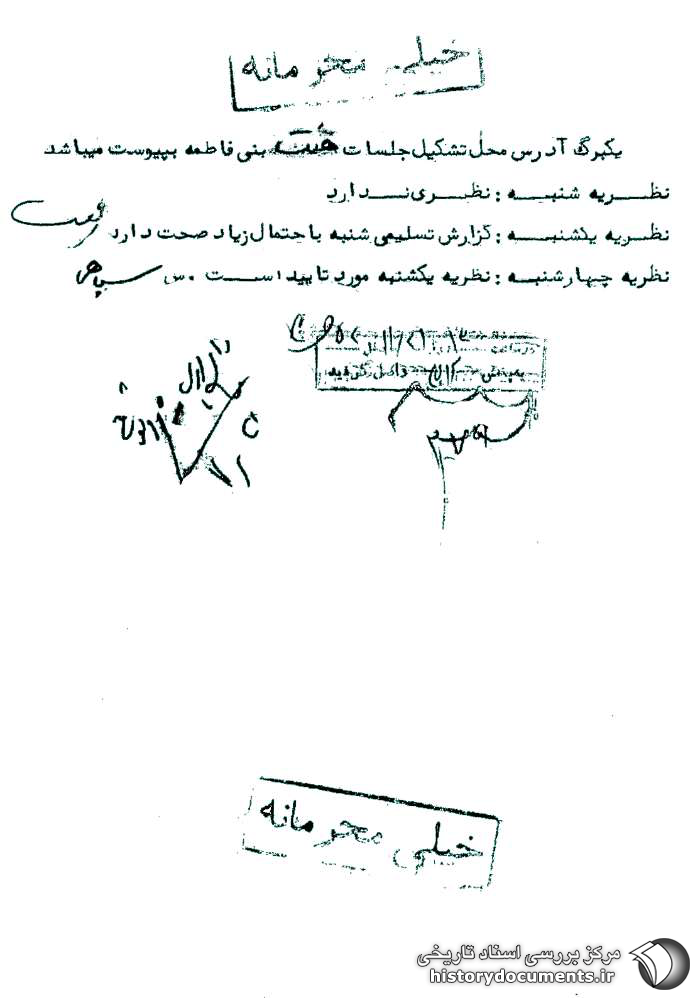 خیلی محرمانه
یکبرگ آدرس محل تشکیل جلسات هیئت بنی فاطمه بپیوست میباشد
نظریه شنبه : نظری ندارد
نظریه یکشنبه : گزارش تسلیمی شنبه باحتمال زیاد صحت دارد
نظریه چهارشنبه : نظریه یکشنبه مورد تایید است . س سپاهر
در ساعت
به بخش واصل گردید
خیلی محرمانه
مرکز بررسی اسناد تاریخی
historydocuments.ir